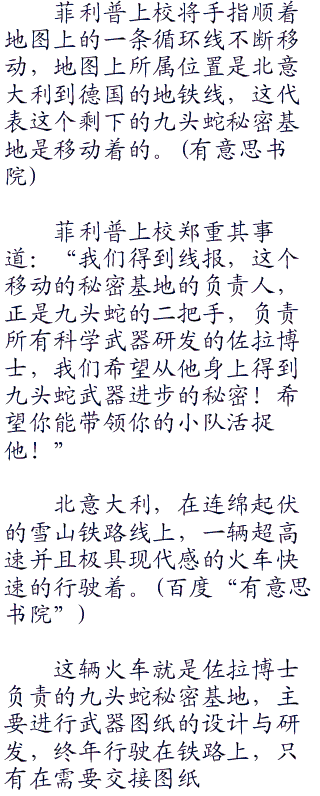 菲利普上校将手指顺着
地图上的一条循环线不断移
动，地图上所属位置是北意
大利到德国的地铁线，这代
表这个剩下的九头蛇秘密基
地是移动着的。(有意思书
院)
菲利普上校郑重其事
道：“我们得到线报，这个
移动的秘密基地的负责人，
正是九头蛇的二把手，负责
所有科学武器研发的佐拉博
士，我们希望从他身上得到
九头蛇武器进步的秘密！希
望你能带领你的小队活捉
他！”
北意大利，在连绵起伏
的雪山铁路线上，一辆超高
速并且极具现代感的火车快
速的行驶着。(百度“有意思
书院”)
这辆火车就是佐拉博士
负责的九头蛇秘密基地，主
要进行武器图纸的设计与研
发，终年行驶在铁路上，只
有在需要交接图纸